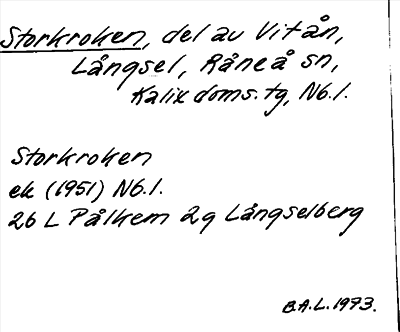 Storkroken, del av Vitån,
Långsel, Råneå sn,
Kalix doms.tg, Nb.l.
Storkroken
ek (1951) Nb.l.
26 L Pålkem 2g Långselberg
B.A.L. 1973.